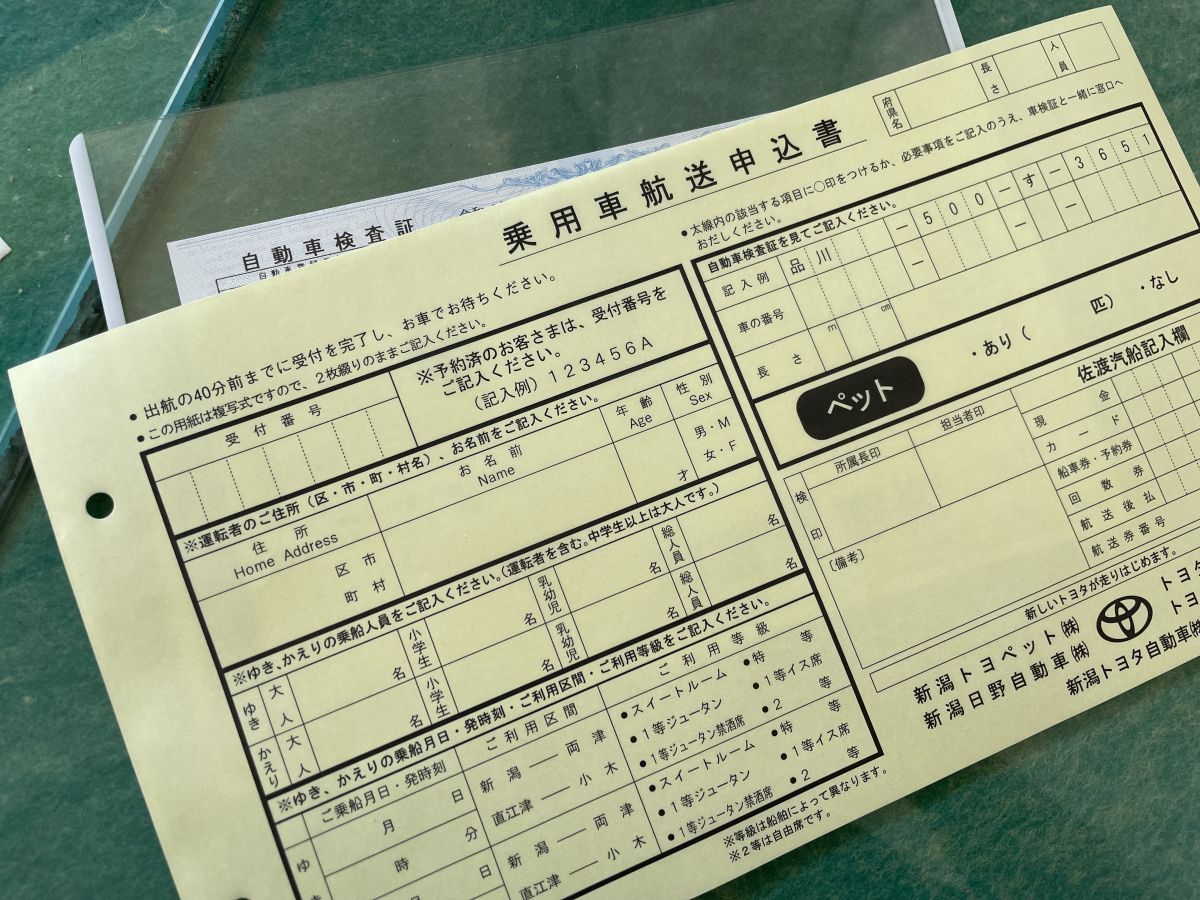 自動車検査証
乗用車航送申込書
府県名
長さ
人員
● 出航の40分前までに受付を完了し、お車でお待ちください。
● この用紙は複写式ですので、2枚綴りのままご記入ください。
● 太線内の該当する項目に○印をつけるか、必要事項をご記入のうえ、車検証と一緒に窓口へ
おだしください。
受付番号
※予約済のお客さまは、受付番号を
ご記入ください。
(記入例) 123456A
※運転者のご住所(区・市・町・村名)、お名前をご記入ください。
住所
Home Address
お名前
Name
年齢
Age
性別
Sex
区市
町村
才
男・M
女・F
※ゆき、かえりの乗船人員をご記入ください。(運転者を含む。中学生以上は大人です。)
ゆき
大人
名
小学生
名
乳幼児
名
総人員
名
かえり
大人
名
小学生
名
乳幼児
名
総人員
名
※ゆき、かえりの乗船月日・発時刻・ご利用区間・ご利用等級をご記入ください。
ご乗船月日・発時刻
ご利用区間
ご利用等級
ゆ
月
日
時
分
新潟―両津
直江津―小木
●スイートルーム
●特等
●1等ジュータン
●1等イス席
●1等ジュータン禁酒席
●2等
日
新潟―両津
直江津―小木
●スイートルーム
●特等
●1等ジュータン
●1等イス席
●1等ジュータン禁酒席
●2等
※等級は船舶によって異なります。
※2等は自由席です。
自動車検査証を見てご記入ください。
記入例
品川-500-す-3651
車の番号
- - -
長さ
m
cm
ペット
・あり( 匹) ・なし
佐渡汽船記入欄
検印
所属長印
担当者印
現金
カード
船車券・予約券
回数券
航送後払
航送券番号
〔備考〕
新しいトヨタが走りはじめます。
新潟トヨペット㈱
新潟日野自動車㈱
トヨタ
トヨ
新潟トヨタ自動車㈱